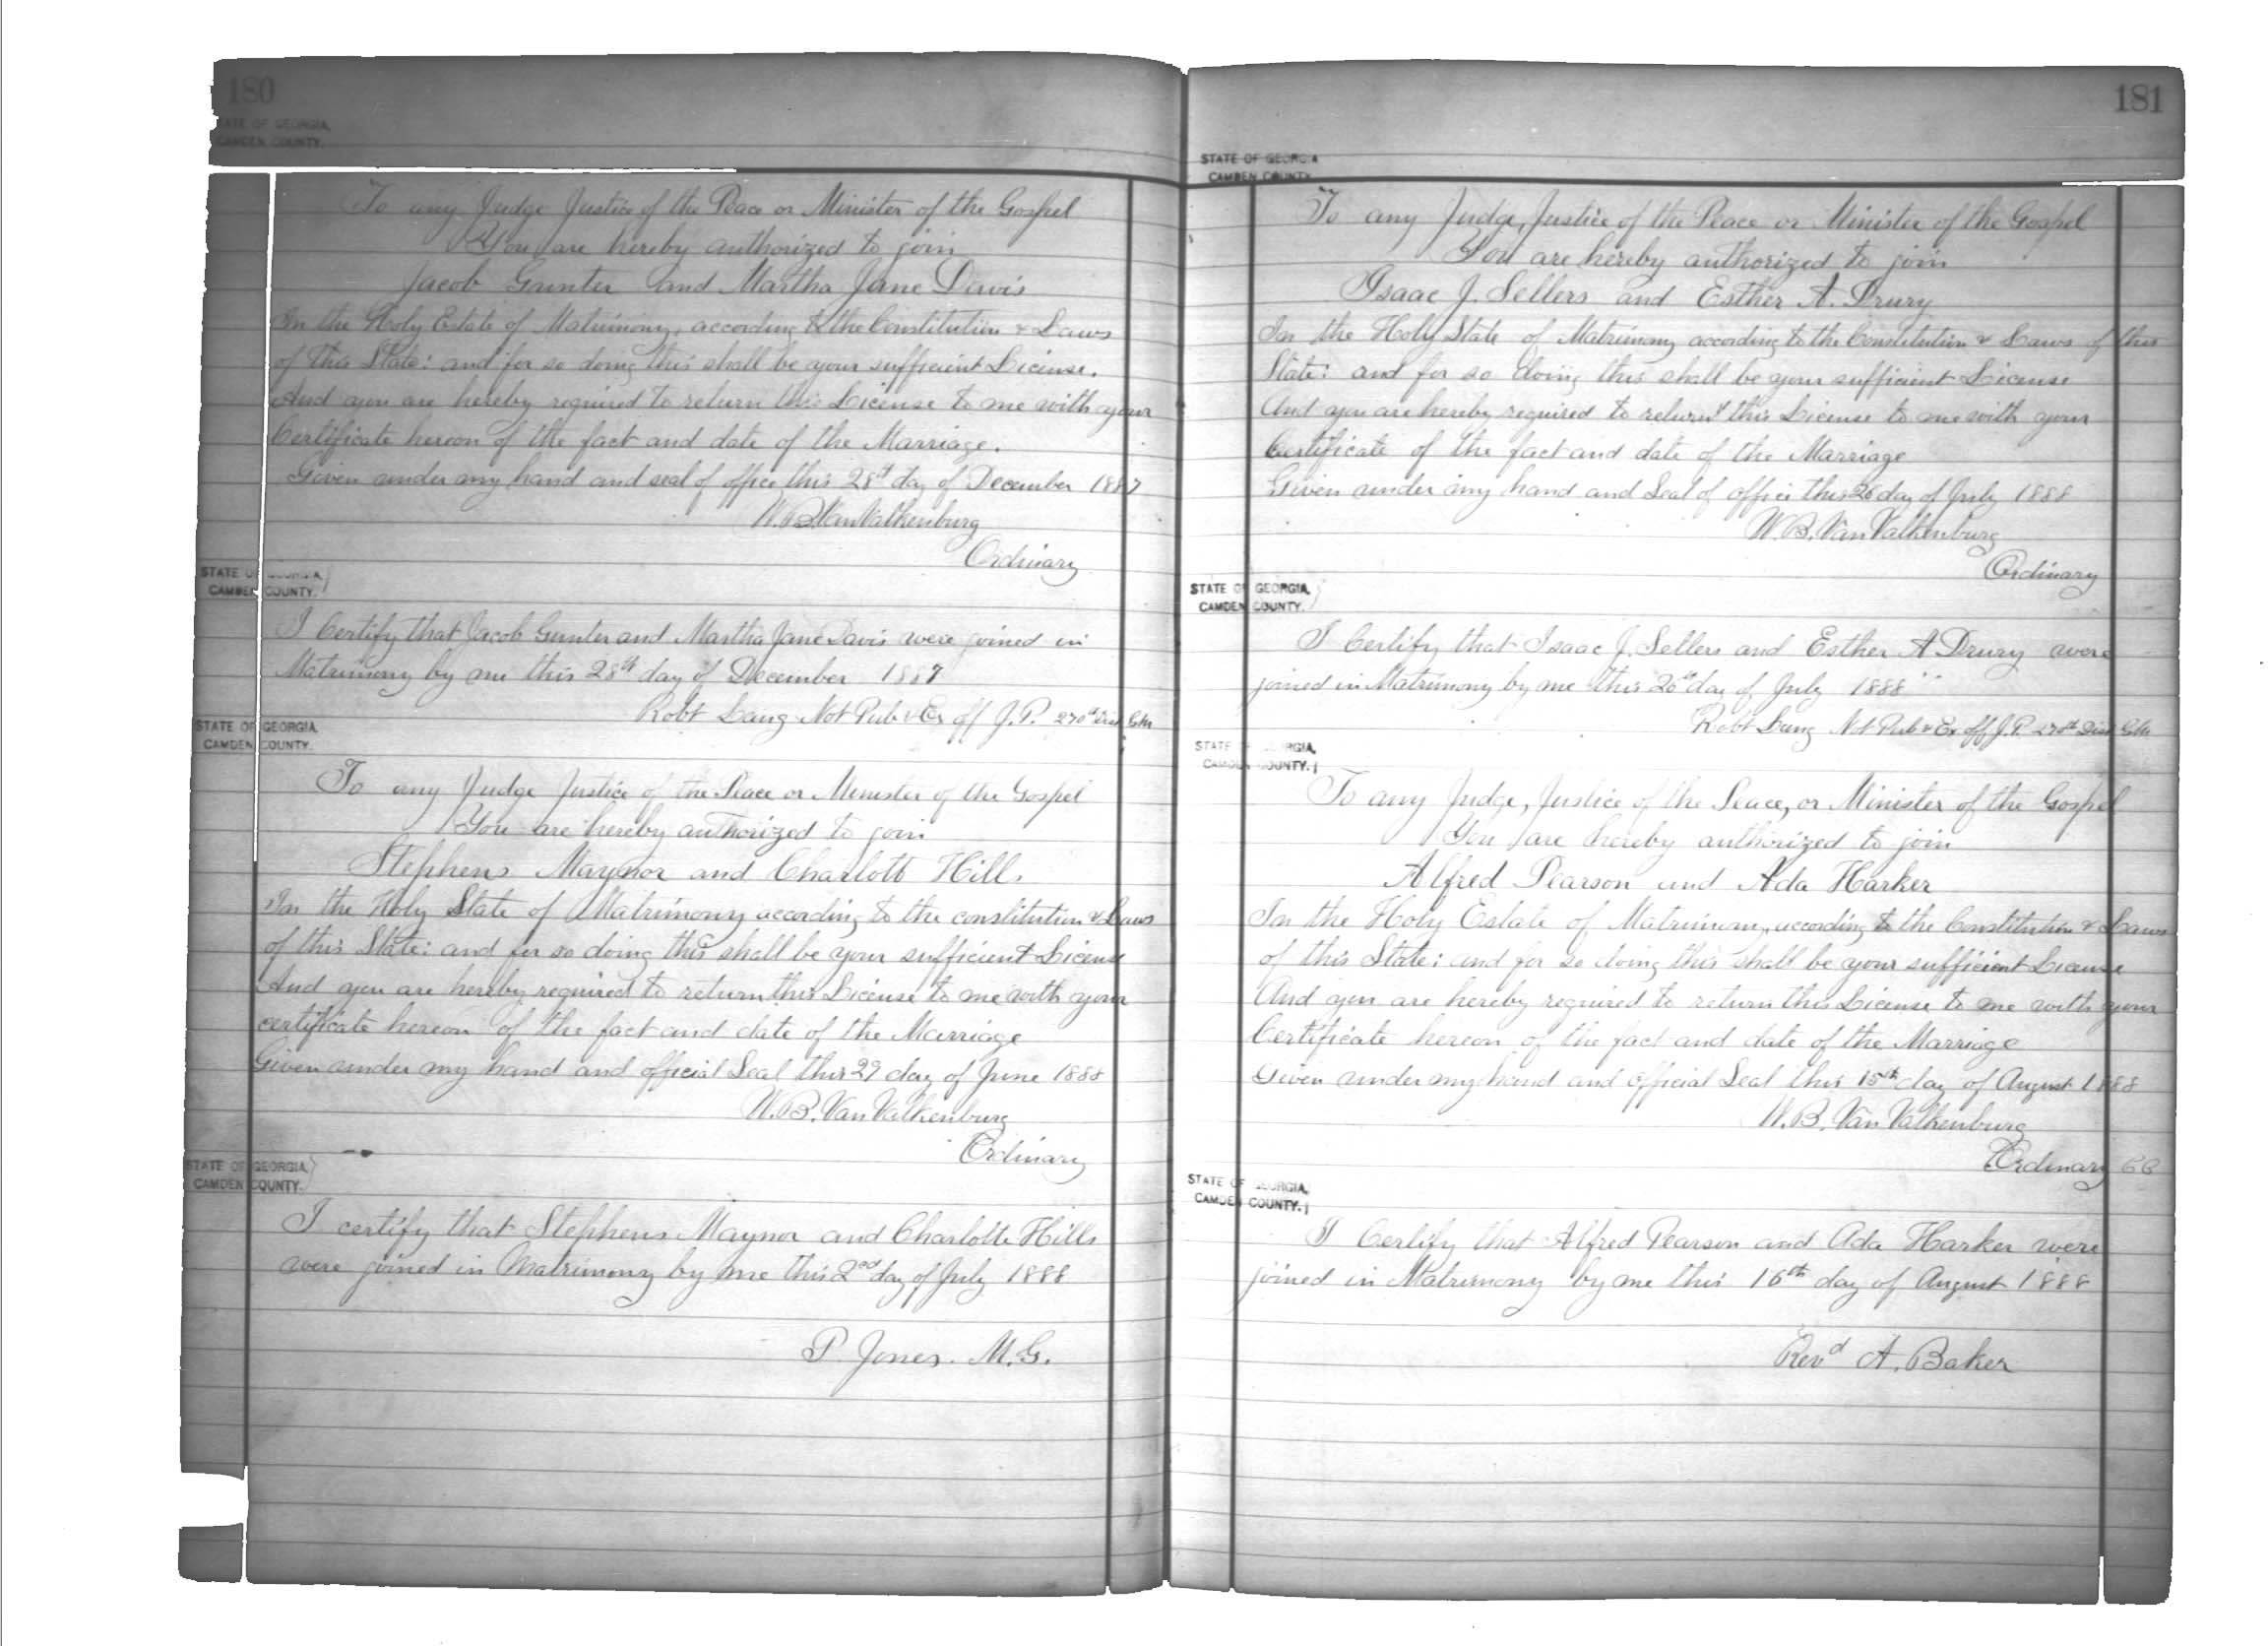 180
STATE OF GEORGIA,
CAMDEN COUNTY.
To any Judge Justice of the Peace or Minister of the Gospel
You are hereby authorized to join
Jacob Gunter and Martha Jane Davis
In the Holy Estate of Matrimony, according to the Constitution & Laws
of this State: and for so doing this shall be your sufficient License.
And you are hereby required to return this License to me with your
Certificate hereon of the fact and date of the Marriage.
Given under my hand and seal of office this 28th day of December 1887
W. B. Van Valkenburg
Ordinary
STATE OF GEORGIA,
CAMDEN COUNTY.
I Certify that Jacob Gunter and Martha Jane Davis were joined in
Matrimony by me this 28th day of December 1887
Robt Lang Not Pub & Ex off J. P. 270th Dist G.M.
STATE OF GEORGIA,
CAMDEN COUNTY.
To any Judge Justice of the Peace or Minister of the Gospel
You are hereby authorized to join
Stephens Maynor and Charlott Hills
In the Holy State of Matrimony according to the constitution & Laws
of this State: and for so doing this shall be your sufficient License
And you are hereby required to return this License to me with your
certificate hereon of the fact and date of the Marriage
Given under my hand and official Seal this 29 day of June 1888
W. B. Van Valkenburg
Ordinary
STATE OF GEORGIA,
CAMDEN COUNTY.
I certify that Stephens Maynor and Charlotte Hills
were joined in Matrimony by me this 2nd day of July 1888
P. Jones. M. G.
181
STATE OF GEORGIA
CAMDEN COUNTY.
To any Judge, Justice of the Peace or Minister of the Gospel
You are hereby authorized to join
Isaac J. Sellers and Esther A. Drury
In the Holy State of Matrimony according to the Constitution & Laws of this
State: and for so doing this shall be your sufficient License
And you are hereby required to return this License to me with your
Certificate of the fact and date of the Marriage
Given under my hand and Seal of office this 26 day of July 1888
W. B. Van Valkenburg
Ordinary
STATE OF GEORGIA,
CAMDEN COUNTY.
I Certify that Isaac J. Sellers and Esther A Drury were
joined in Matrimony by me this 26th day of July 1888
Robt Lang Not Pub & Ex off J. P. 270th Dist G.M.
STATE OF GEORGIA,
CAMDEN COUNTY.
To any Judge, Justice of the Peace, or Minister of the Gospel
You are hereby authorized to join
Alfred Pearson and Ada Harker
In the Holy Estate of Matrimony, according to the Constitution & Laws
of this State: and for so doing this shall be your sufficient License
And you are hereby required to return this License to me with your
Certificate hereon of the fact and date of the Marriage
Given under my hand and official Seal this 15th day of August 1888
W. B. Van Valkenburg
Ordinary CC
STATE OF GEORGIA,
CAMDEN COUNTY.
I Certify that Alfred Pearson and Ada Harker were
joined in Matrimony by me this 16th day of August 1888
Revd A. Baker